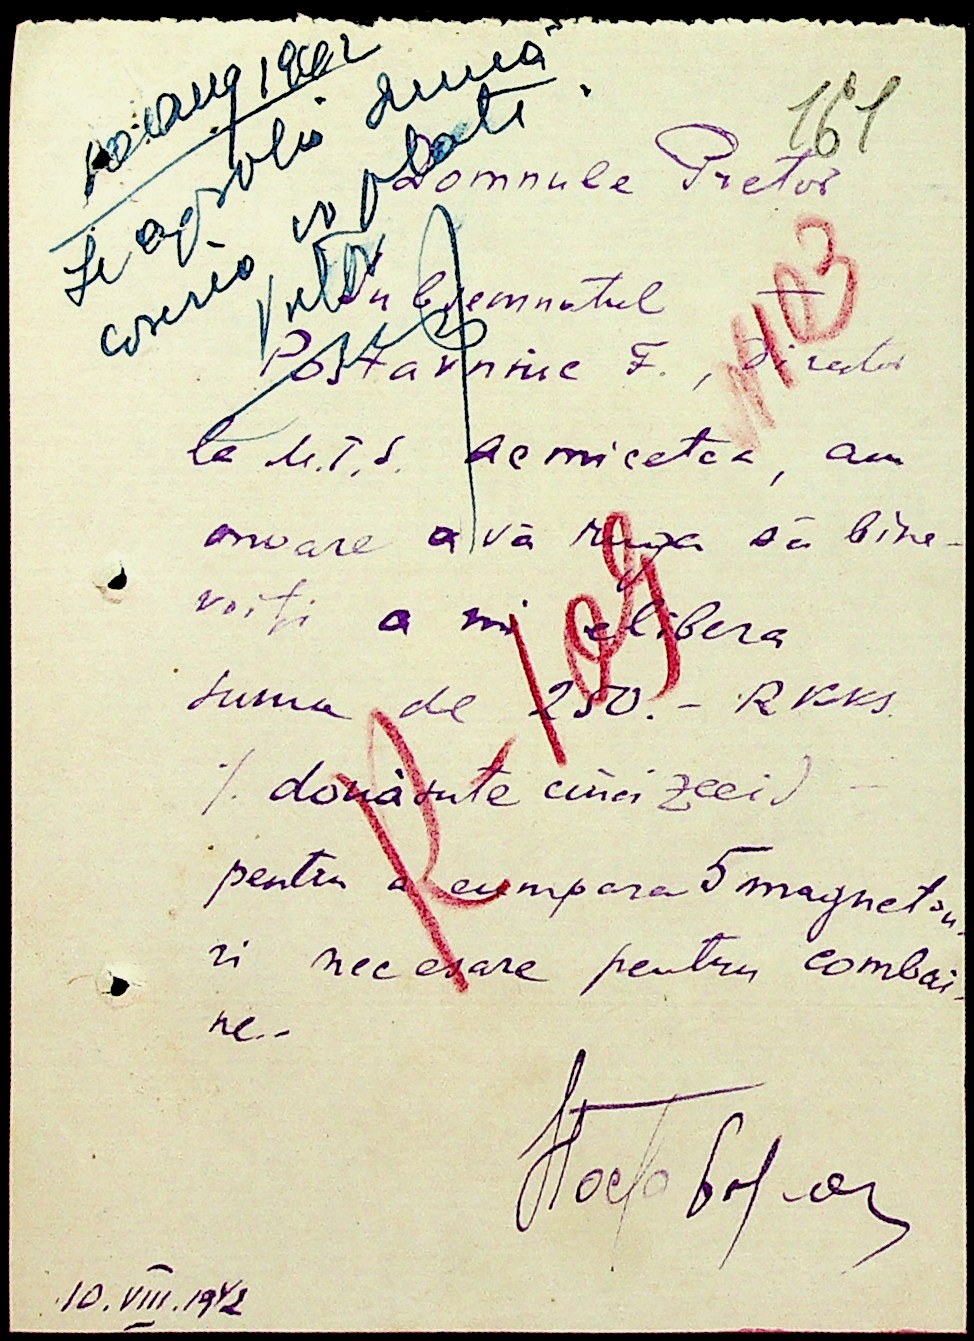 10 Aug 1942
Se aprobă suma
cerută
Pretor
161
Domnule Pretor
Subsemnatul
F., Director
la M.T.S. am
onoare a vă ruga să bine-
voiți a mi elibera
suma de 250.- RKKS.
/. două sute cinci zeci)
pentru a cumpara 5 magnetou-
ri necesare pentru combai-
ne.-
R-109
10.VIII.1942